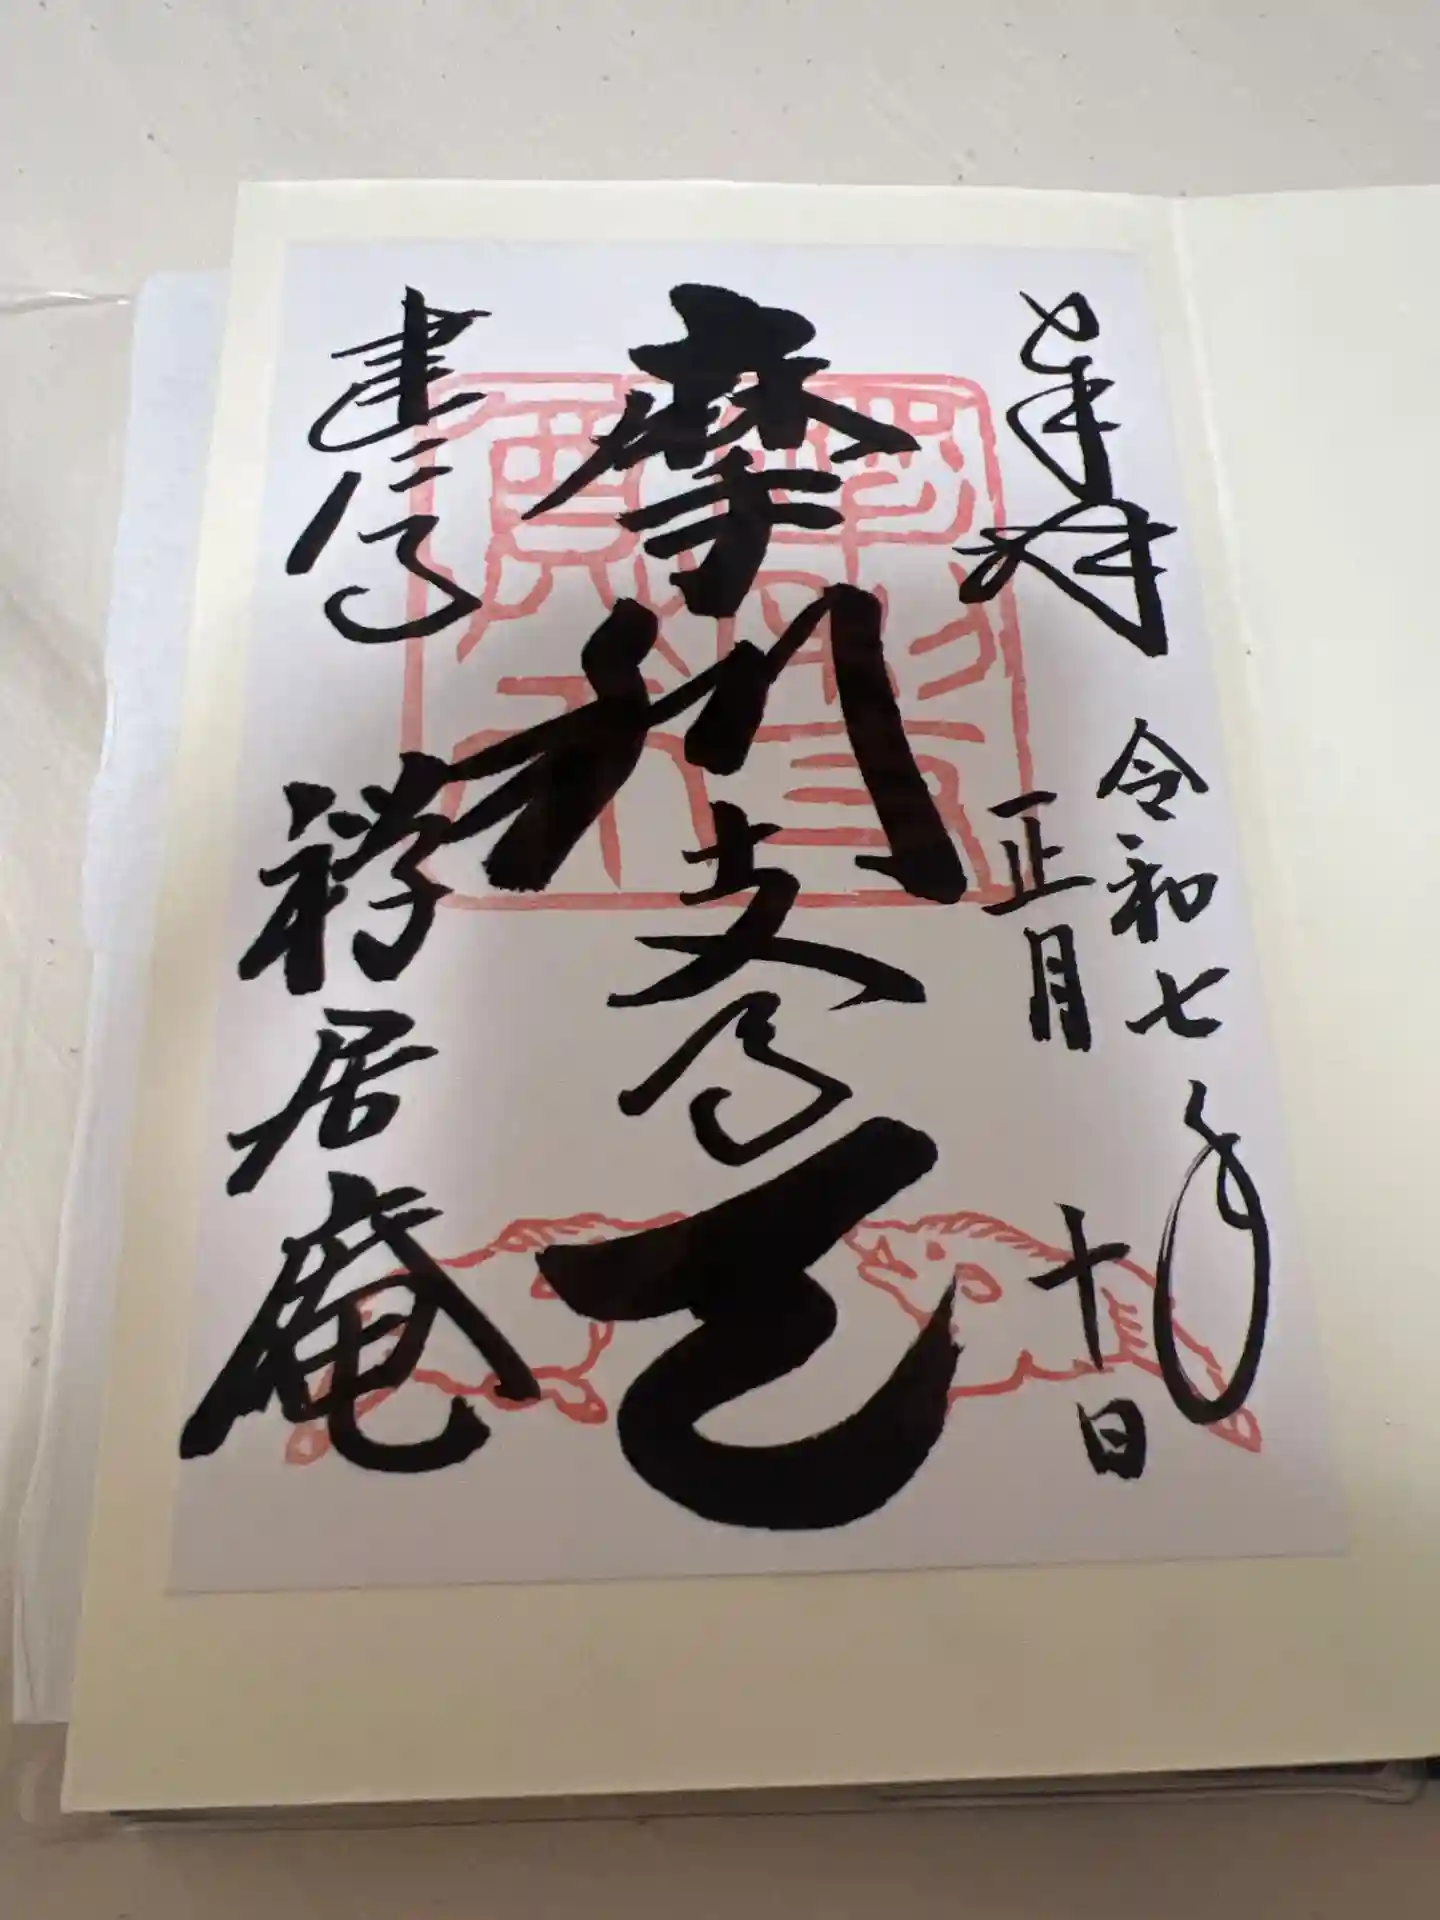 奉拝
令和七年
正月十日
摩利支尊天
建仁寺
禅居庵